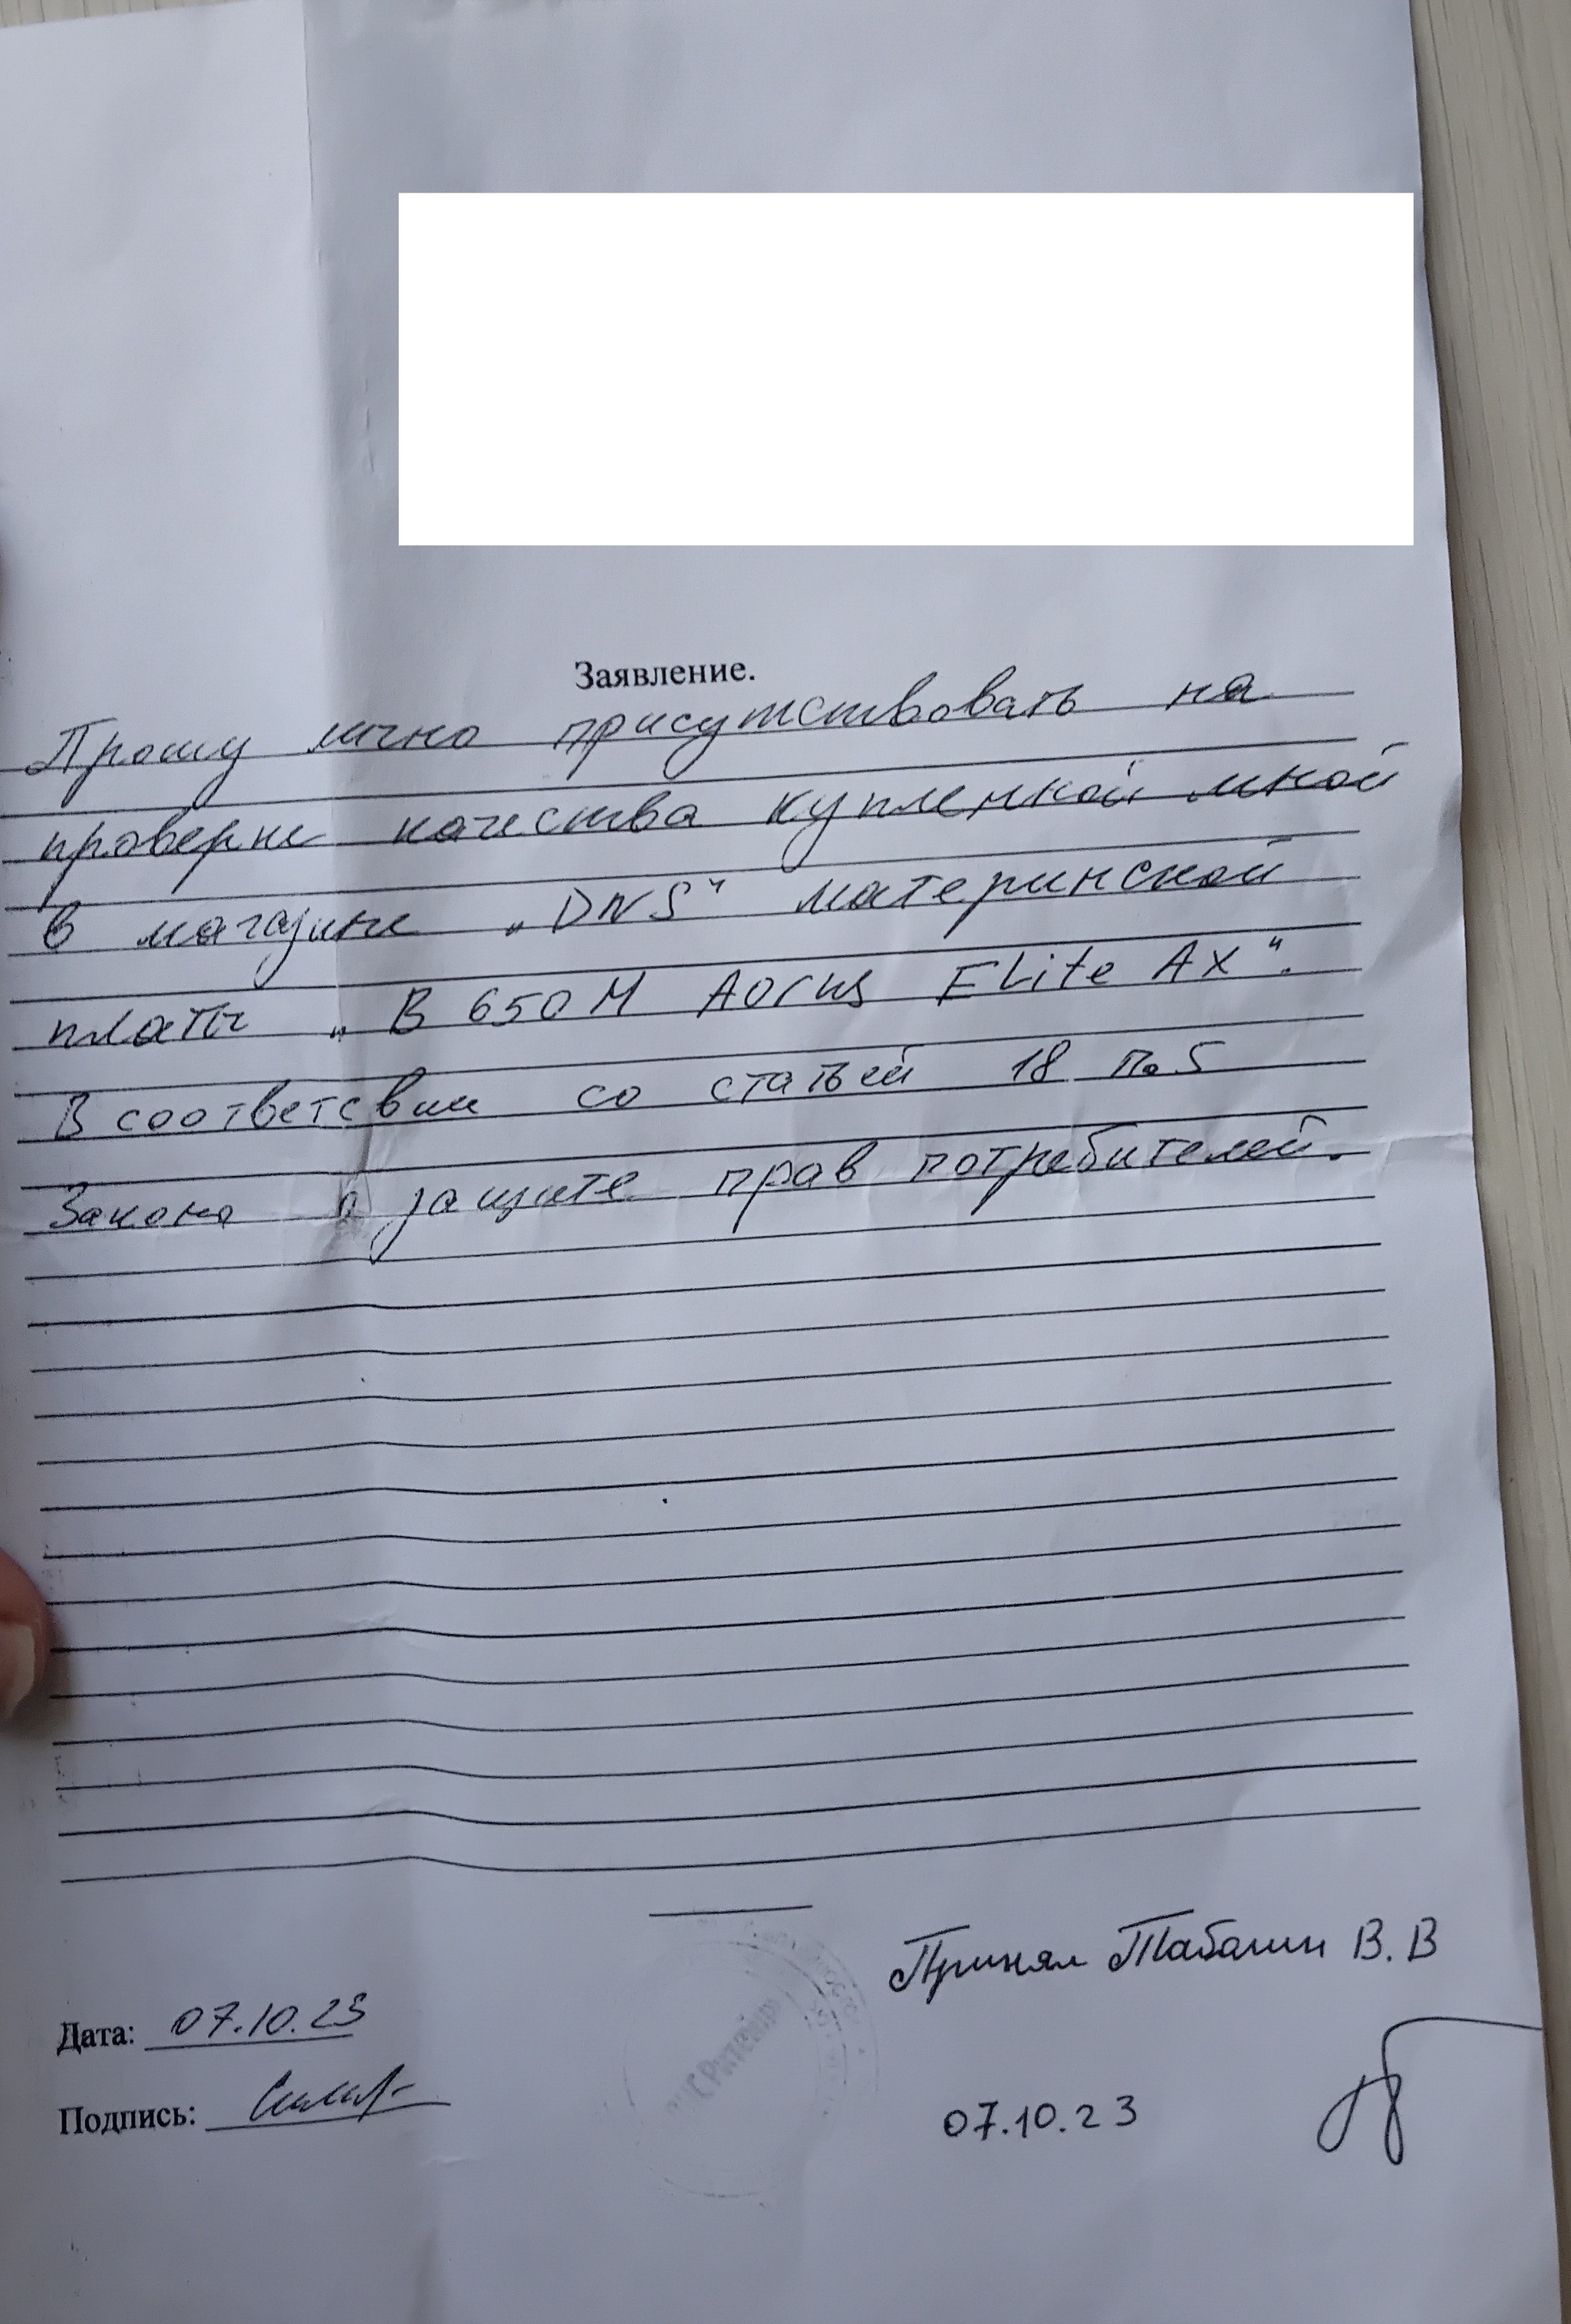 Заявление.
Прошу лично присутствовать на
проверке качества купленной мной
в магазине „DNS“ материнской
платы „B 650 M Aorus ELite AX“.
В соответсвии со статьей 18 п. 5
Закона о защите прав потребителей.
Принял Табакин В. В
Дата: 07.10.23
Подпись:
07.10.23